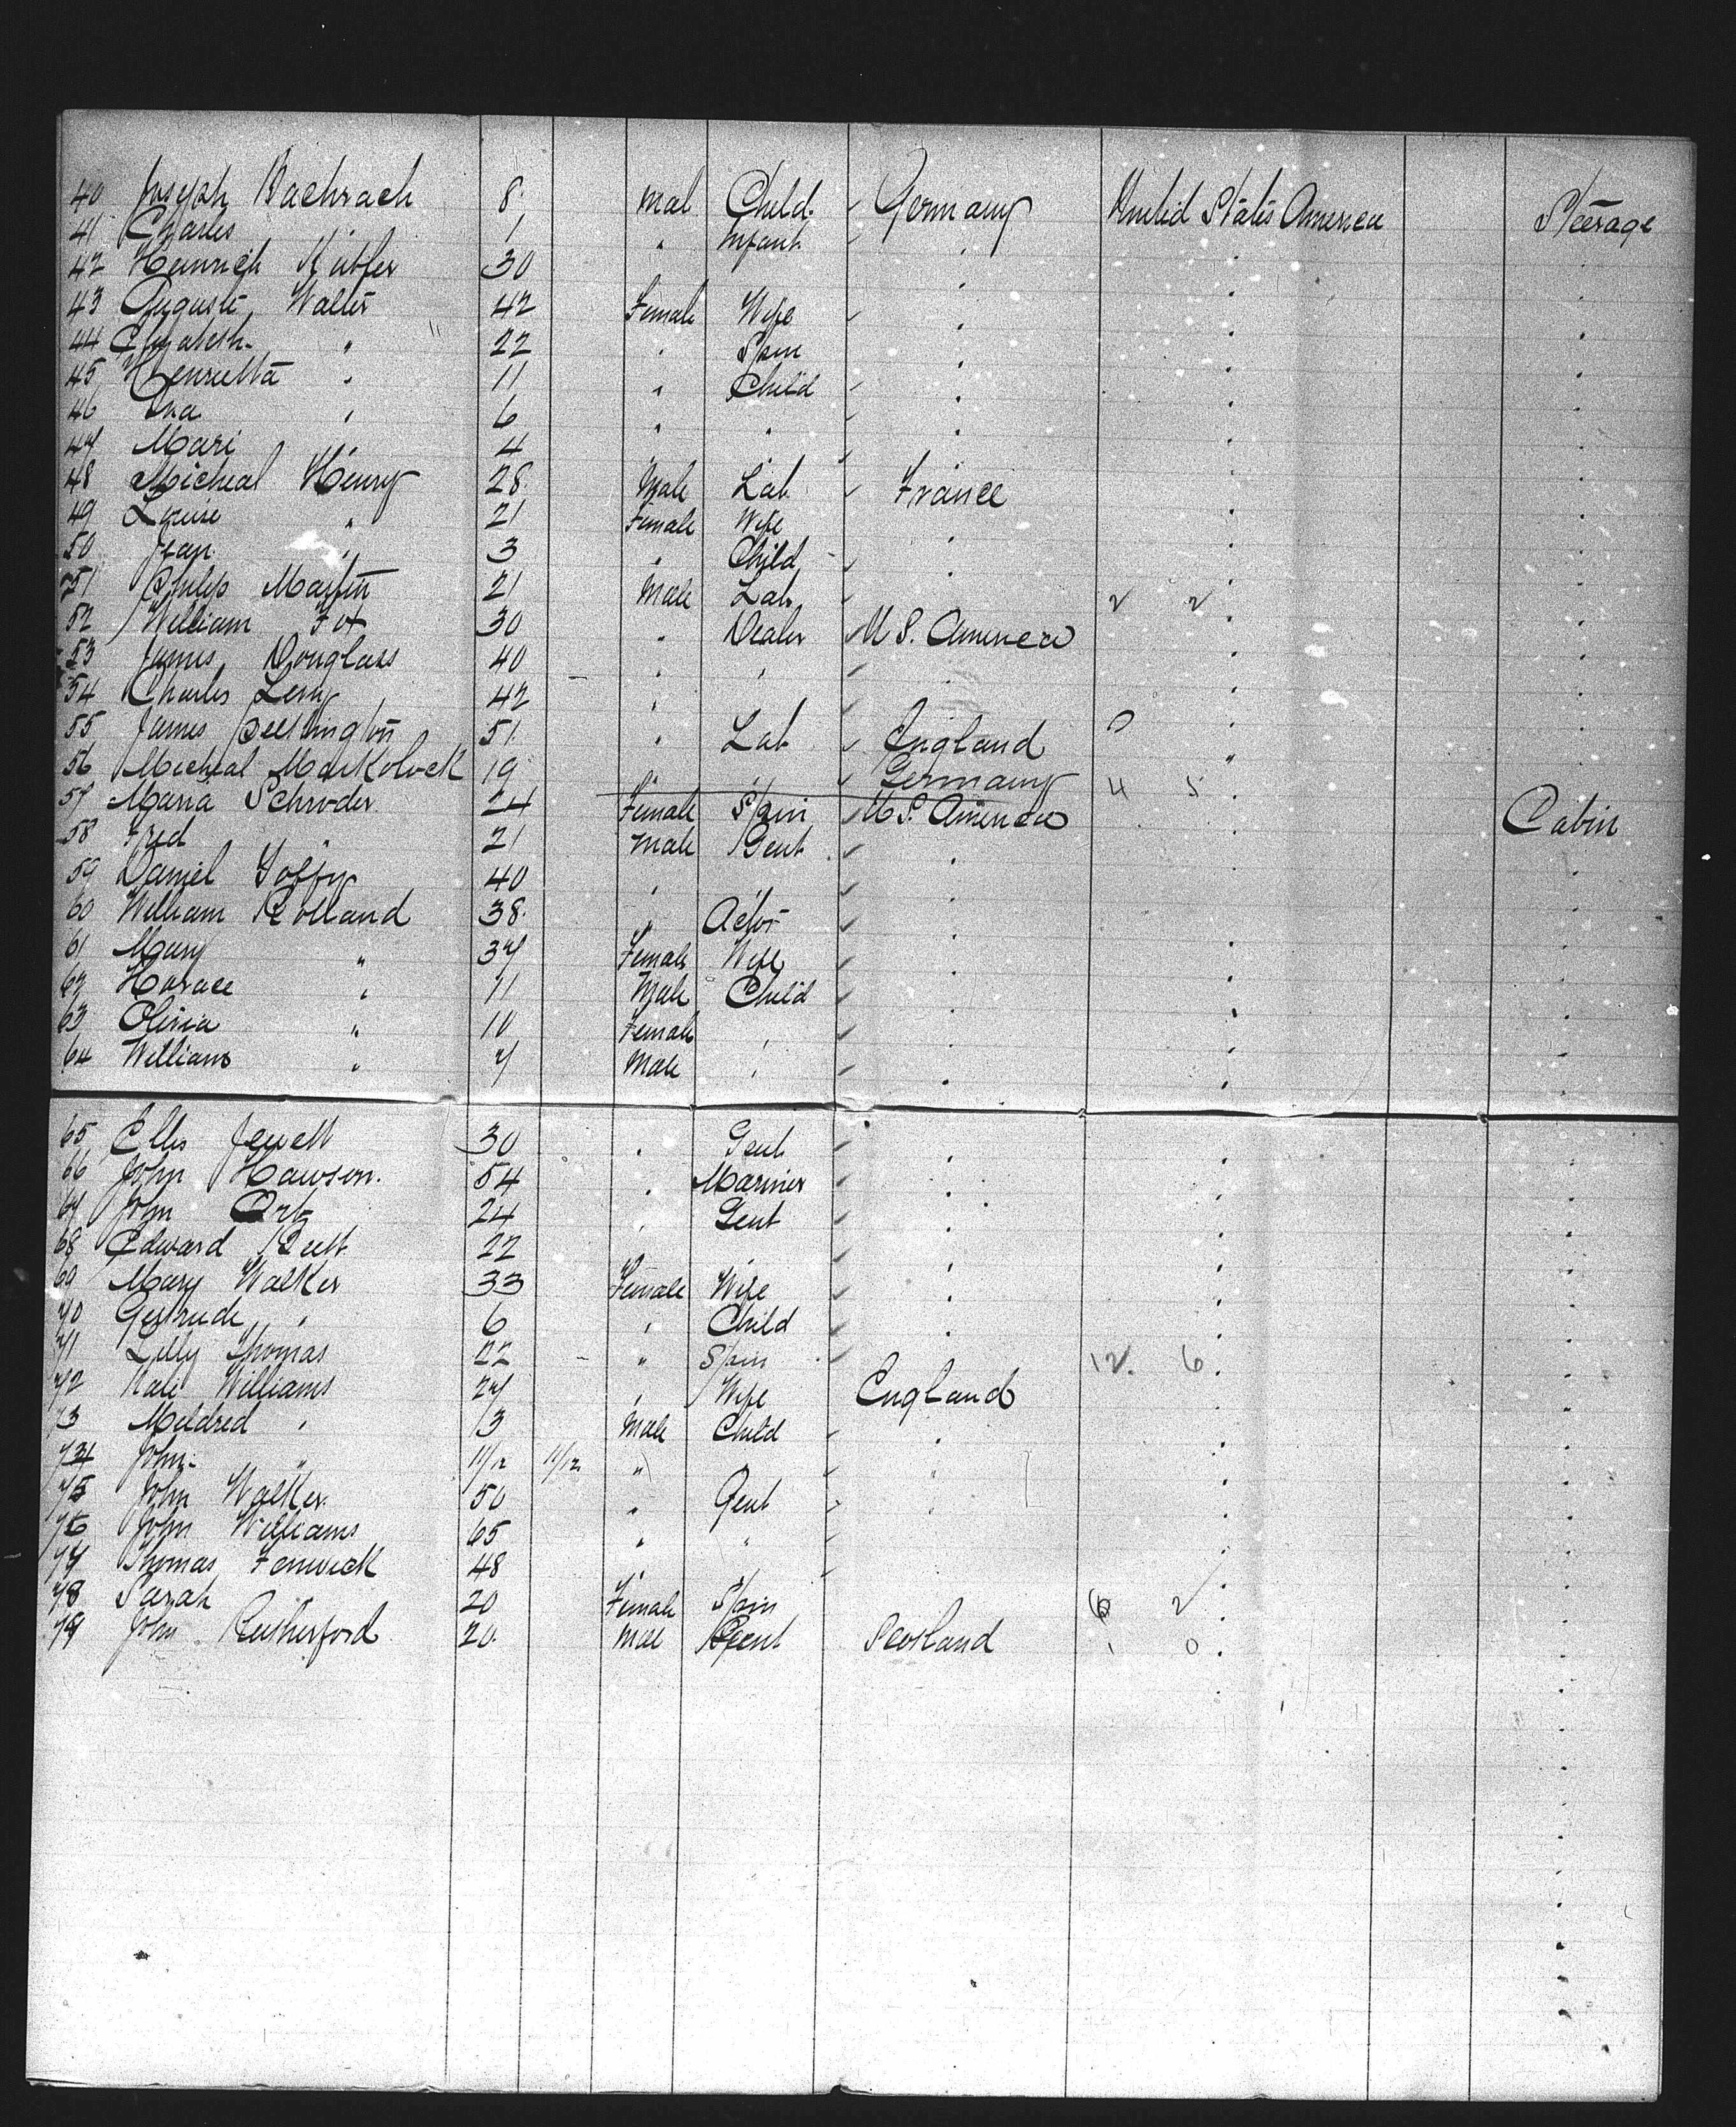 40 Joseph Bachrach 8 Mal Child Germany United States America Steerage
41 Charles " 1 " Infant "
42 Heinrich 30 "
43 Auguste Walter 42 Female Wife "
44 Elizabeth " 22 " Spin "
45 Henrietta " 11 " Child "
46 " 6 " " "
47 Mari 4
48 Micheal Henry 28 Male Lab France
49 Louise " 21 Female Wife "
50 Jean " 3 " Child "
51 Philip Martin 21 Male Lab 2 2
52 William Fox 30 " Dealer U S. America
53 James Douglass 40 " " "
54 Charles Levy 42 "
55 James 51 " Lab England
56 Micheal 19 " " Germany 4 5
57 Maria Schroder 24 Female Spin U S. America Cabin
58 Fred " 21 Male Gent "
59 Daniel 40 " " "
60 William Rolland 38 " Actor "
61 Mary " 37 Female Wife "
62 Horace " 11 Male Child "
63 Olivia " 10 Female "
64 William " 7 Male " "
65 Ellis Jewett 30 " Gent "
66 John Hawson. 54 " Mariner "
67 John Orb 24 " Gent "
68 Edward 22 " "
69 Mary Walker 33 Female Wife "
70 Gertrude " 6 " Child "
71 Lilly Thomas 22 " Spin 12 6
72 Kate Williams 27 " Wife England
73 Mildred " 3 Male Child "
74 John " 11/12 11/12 " " "
75 John Walker 50 " Gent "
76 John Williams 65 " "
77 Thomas Fenwick 48 " "
78 Sarah 20 Female Spin 6 2
79 John Rutherford 20 Mal Gent Scotland 1 0